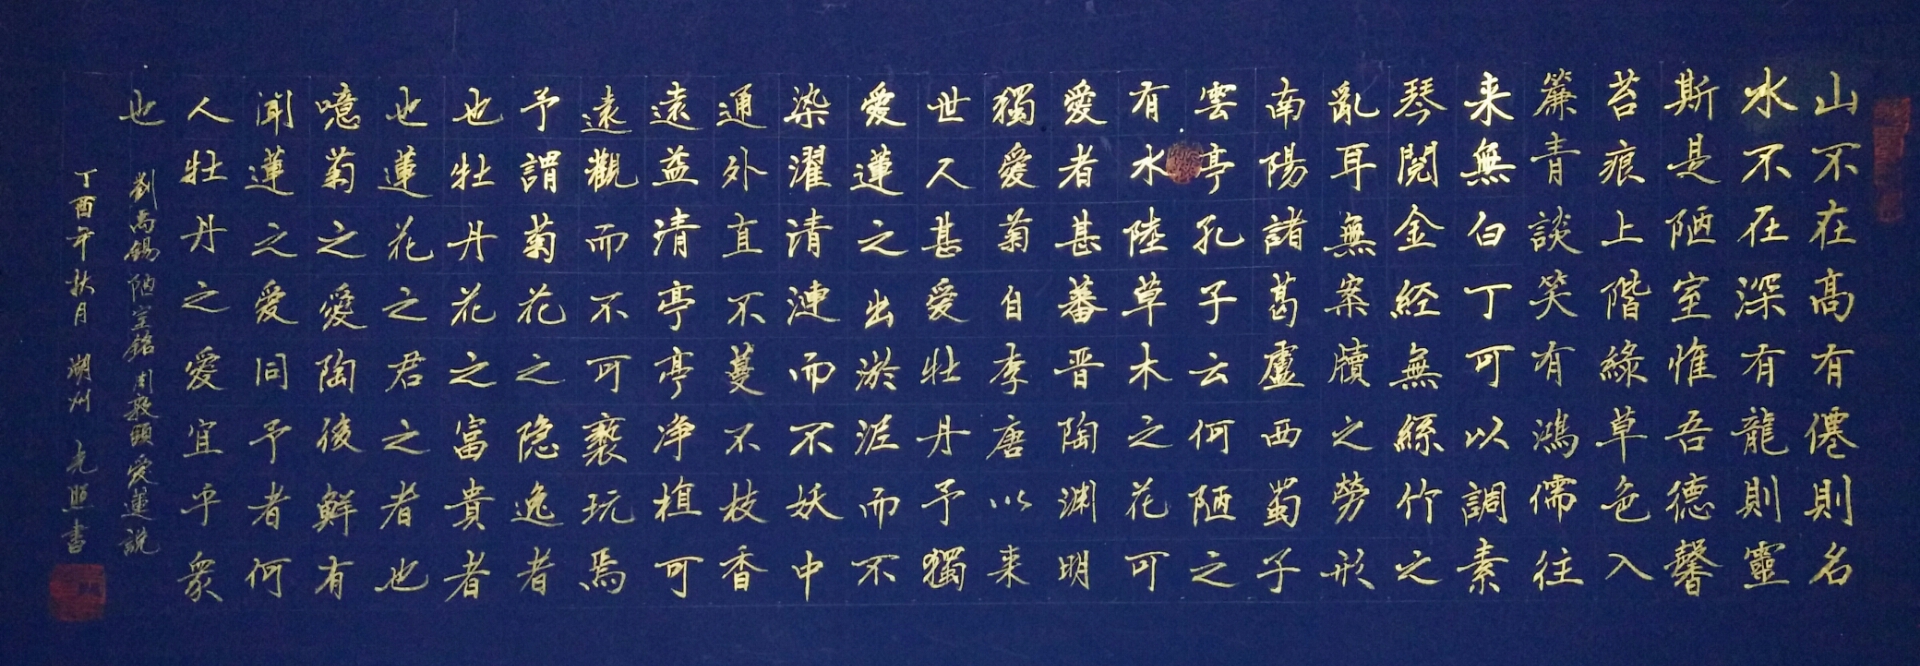 山不在高有僊則名
水不在深有龍則靈
斯是陋室惟吾德馨
苔痕上階緑草色入
簾青談笑有鴻儒往
来無白丁可以調素
琴閱金経無絲竹之
亂耳無案牘之勞形
南陽諸葛廬西蜀子
雲亭孔子云何陋之
有水陸草木之花可
愛者甚蕃晋陶渊明
獨愛菊自李唐以来
世人甚愛牡丹予獨
愛蓮之出淤泥而不
染濯清漣而不妖中
通外直不蔓不枝香
遠益清亭亭净植可
遠觀而不可褻玩焉
予謂菊花之隐逸者
也牡丹花之富貴者
也蓮花之君之者也
噫菊之愛陶後鮮有
聞蓮之愛同予者何
人牡丹之愛宜乎衆
也
劉禹錫陋室銘周敦頤愛蓮説
丁酉年秋月 湖州 光照书